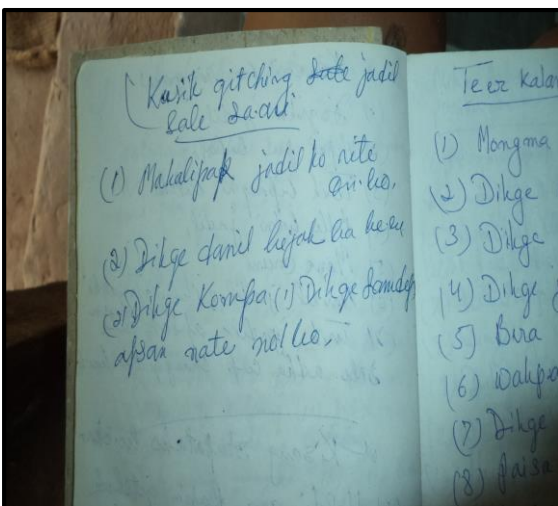 Kusik gitching jadil
Sale sa.ani
(1) Makalipak jadil ko nite
on.bo.
(2) Dikge danil bijak ba
(3) Dikge Kompa (1) Dikge
apsan nate nolbo.
Teer
(1) Mongma
(2) Dikge
(3) Dikge
(4) Dikge
(5) Bira
(6)
(7) Dikge
(8) Paisa